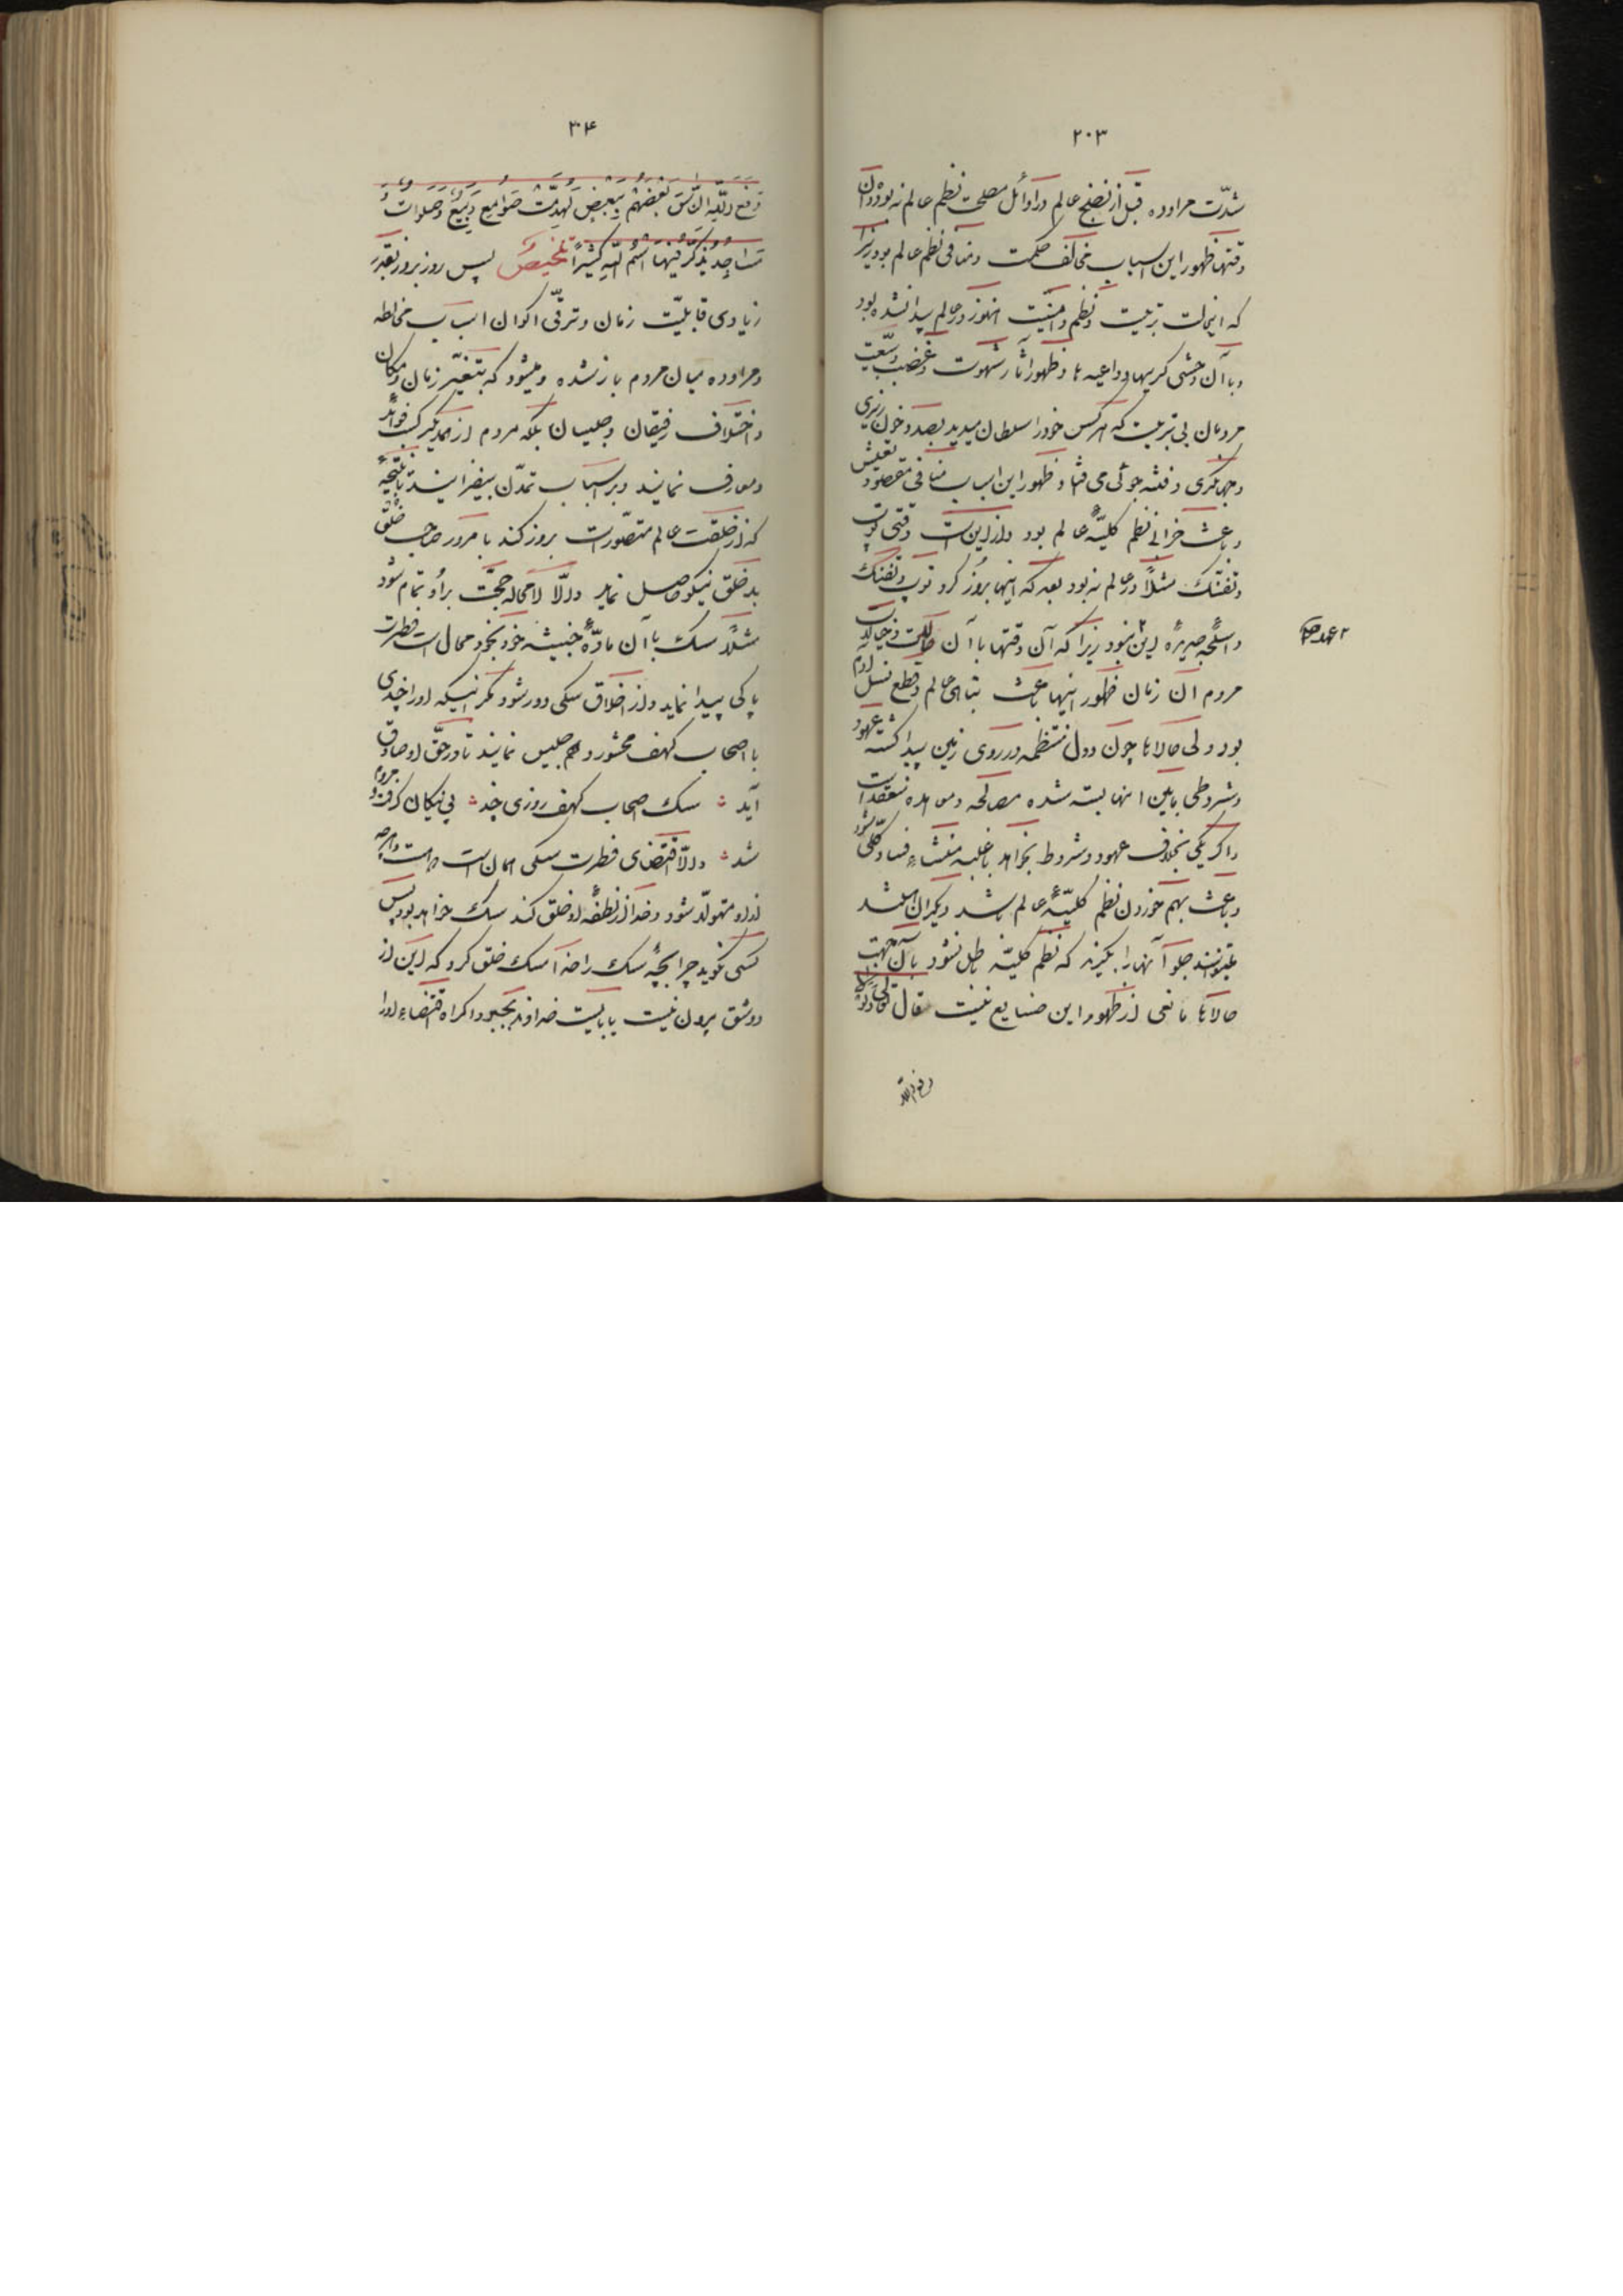 ۲۰۳
شدّت مراوده قبل از نضج عالم در اوائل مصلحت نظم عالم نه بود و آن
وقتها ظهور این اسباب مخالف حکمت و منافی نظم عالم بود زیرا
که این حالت تربیت و نظم و امنیت هنوز در عالم پیدا نشده بود
و با آن وحشی کریها و داعیه ها و ظهور آثار شهوت و غضب و سبعیت
مردمان بی تربیت که هر کس خود را سلطان میدید بصدد خون ریزی
و جهانگری و فتنه جوئی می افتاد ظهور این اسباب منافی مقصود تعیش
و باعث خرابی نظم کلیّهٔ عالم بود و از این است وقتی توپ
و تفنک مثلاً در عالم نه بود بعد که اینها بروز کرد توپ و تفنک
و اسلحهٔ جدیده این نبود زیرا که آن وقتها با آن حالت و خیالات
مردم آن زمان ظهور اینها باعث تباهی عالم و قطع نسل آدم
بود ولی حالاها چون دول منتظمه در روی زمین پیدا گشته عهود
و شروطی مابین انها بسته شده مصالحه و معاهده منعقد است
و اگر یکی بخلاف عهود و شروط بخواهد باغلبه منشاء فساد کلی شود
و باعث بهم خوردن نظم کلیّهٔ عالم باشد دیگران
میتوانند جلو آنها را بگیرند که نظم کلیّه باطل نشود بآن جهت
حالاها مانعی از ظهور این صنایع نیست قال تعالی ولولا
دفع الله
۲ عهد جو
۳۰۴
دفع اللّه النّاس بعضهم ببعض لهدّمت صوامع و بیع و صلوات و
مساجد یذکر فیها اسم اللّه کثیراً تلخیص پس روز بروز بقدر
زیادی قابلیّت زمان و ترقّی اکوان اسباب مخالطه
و مراوده میان مردم باز شده و میشود که بتغیّر زمان و مکان
و اختلاف رفیقان و جلیسان بلکه مردم از همدیگر کسب فواید
و معارف نمایند و بر اسباب تمدّن بیفزایند تا نتیجهٔ
که از خلقت عالم متصوّر است بروز کند یا مرور صاحب خلق
بد خلق نیکو حاصل نماید و الّا لا محاله حجّت بر او تمام شود
مثلاً سک با آن مادّهٔ خبیثه خود بخود محال است فطرت
پاکی پیدا نماید و از اخلاق سکی دور شود مکر اینکه او را چندی
با اصحاب کهف محشور و هم جلیس نمایند تا در حقّ او صادق
آید : سک اصحاب کهف روزی چند : پی نیکان گرفت و مردم
شد : و الّا اقتضای فطرت سکی همان است که هست و هر چه
از او متولّد شود و خدا از نطفهٔ او خلق کند سک خواهد بود پس
کسی نگوید چرا بچهٔ سک را خدا سک خلق کرد که این از
دو شق بیرون نیست یا بایست خداوند بجبر و اکراه اقتضاء او را